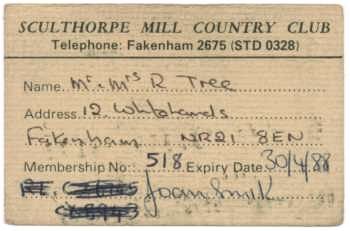 SCULTHORPE MILL COUNTRY CLUB
Telephone: Fakenham 2675 (STD 0328)
Name. Mr & Mrs R Tree
Address. 12 Whitelands
Fakenham NR21 8EN
Membership No: 518 Expiry Date: 30/4/88
Joan Smik